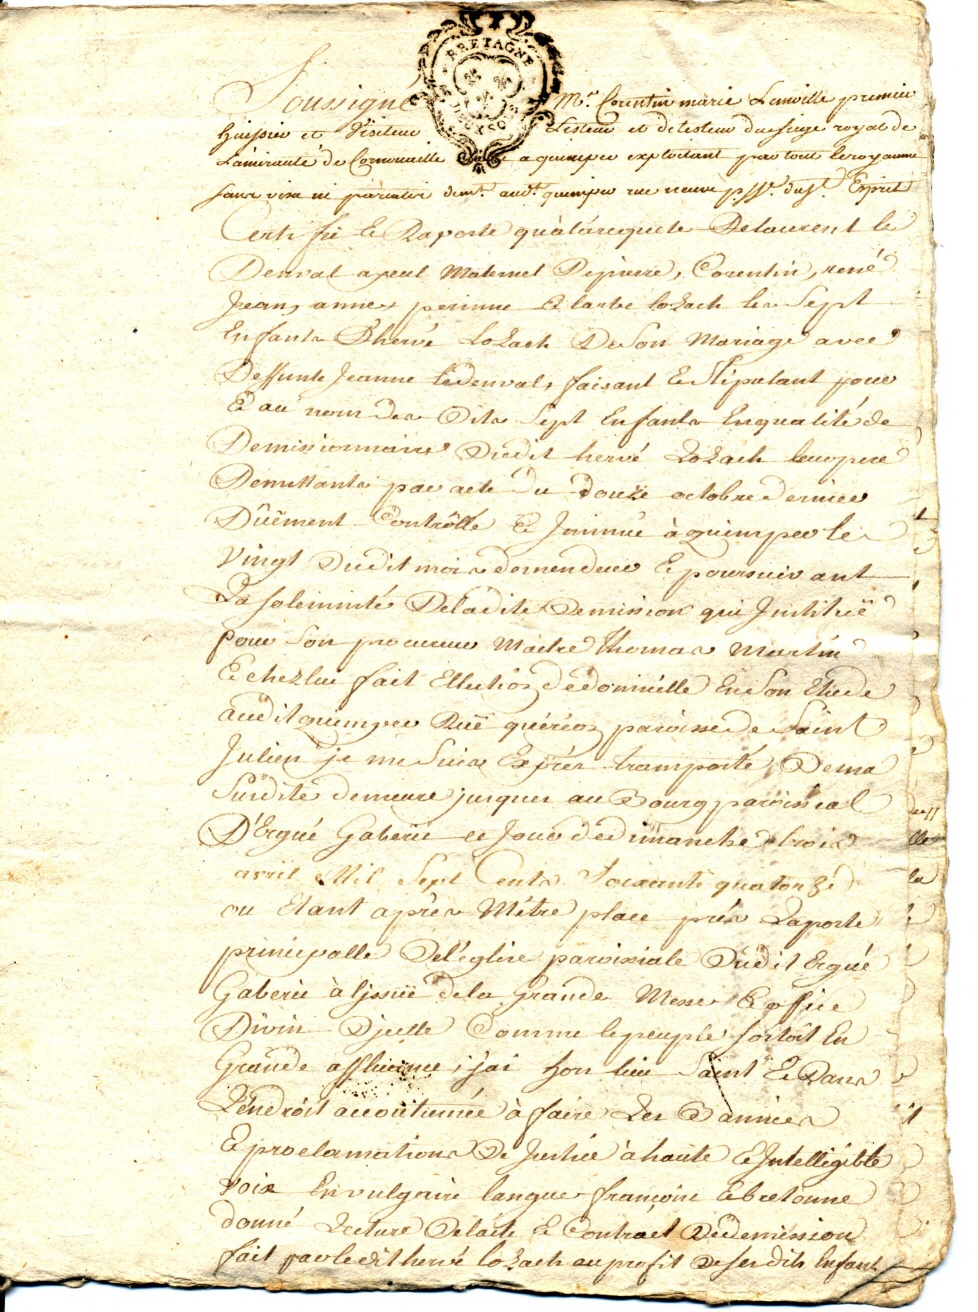 BRETAGNE
DEUX SOLS
Soussigné Mr. Corentin marie Lanville premier
huissier et Visiteur Lesteur et delesteur du siege royal de
Lamirauté de Cornouaille a quimper exploitant partout le royaume
sans visa ni pareatis demt. audt. quimper rue neuve pssse. du st. Esprit
Certifie Et Raporte qu'à la requete De laurent le
Denval ayeul Maternel De pierre, Corentin, rené
Jean, anne, perinne Et barbe lozach les Sept
Enfants D'hervé Lozach De son Mariage avec
Deffunte Jeanne le denval, faisant Et Stipulant pour
Et au nom des Dits Sept Enfants En qualité de
Demissionnaires Dudit hervé Lozach leur pere
Demettants par acte du douze octobre dernier
Dûëment Controllé Et Insinué à quimper le
Vingt Dudit mois demendeur Et poursuivant
La Solemnité De ladite Demission qui Institüe
pour Son procureur Maitre Thomas Martin
Et chez lui fait Ellection de domicille En son Etude
audit quimper Ruë quéréon paroisse de Saint
Julien je me Suis Exprés transporté, De ma
Susdite demeure jusques au Bourg paroissial
D'Ergué Gaberic ce Jour de dimanche trois
avril Mil Sept Cents Soixante quatorze
ou Etant aprés M'étre place prés La porte
principalle De l'église paroissiale Dudit Ergué
Gaberic à L'issuë de la Grande Messe Et office
Divin D'jcelle Comme le peuple sortoit En
Grande affluance, j'ai hors lieu Saint Et Dans
L'endroit accoutumée à faire Les Bannies
Et proclamations De Justice à haute Et Intelligible
voix En vulgaire langue françoise Et bretonne
donné Lecture De l'acte Et Contract De demission
fait par ledit hervé lozach au profit De ses dits Enfants